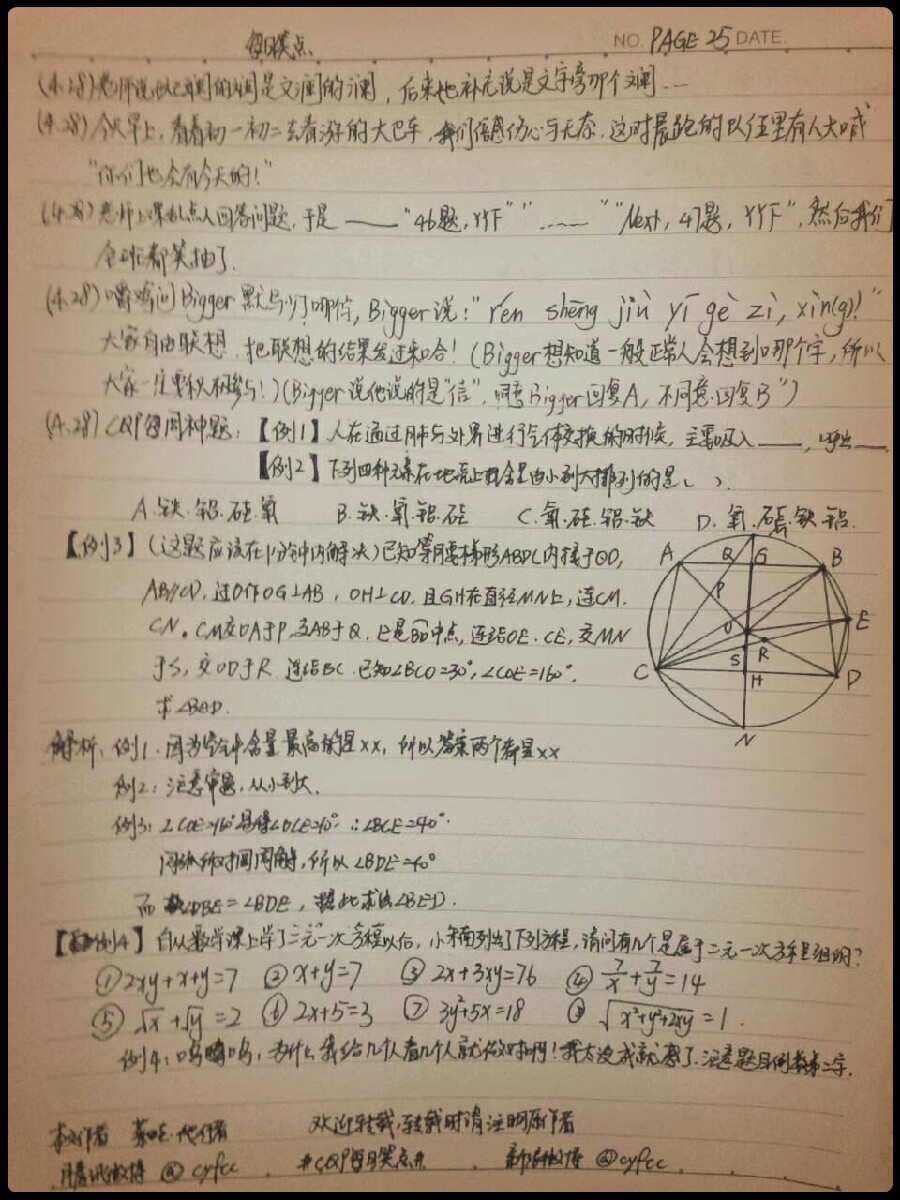 每日笑点 NO. PAGE 25 DATE.
(4.28)老师说的是文澜的澜，后来他补充说是文字旁那个文阑……
(4.28)今天早上，看着初一初二去春游的大巴车，我们倍感伤心与无奈，这时晨跑的队伍里有人大喊
“你们也会有今天的！”
(4.28)老师上课乱点人回答问题，于是——“46题，YY下”“……”“Next，47题，YY下”，然后我们
全班都笑抽了。
(4.28)问Bigger默写少了哪个字，Bigger说：“rén shēng jiù yī gè zì，xìn(g)！”
大家自由联想，把联想的结果发过来哈！(Bigger想知道一般正常人会想到哪个字，所以
大家一定要积极参与！)(Bigger说他说的是“信”，同意Bigger回复A，不同意回复B”)
(4.28)CQP每周神题：【例1】人在通过肺与外界进行气体交换的时候，主要吸入____，呼出____
【例2】下列四种元素在地壳上的含量由小到大排列的是( )．
A.铁.铝.硅.氧 B.铁.氧.铝.硅 C.氧.硅.铝.铁 D.氧.硅.铁.铝.
【例3】(这题应该在1分钟内解决)已知等腰梯形ABDC内接于⊙O，
AB∥CD，过O作OG⊥AB，OH⊥CD，且GH在直径MN上，连CM．
CN。CM交OA于P，交AB于Q，E是BD中点，连结OE．CE，交MN
于S，交OD于R．连结BC．已知∠BCO=30°，∠COE=160°．
求∠BED．
A Q G B
P
O E
S R
C H D
N
解析：例1．因为空气中含量最高的是xx，所以答案两个都是xx
例2：注意审题，从小到大．
例3：∠COE=160°易得∠OCE=10°∴∠BCE=40°．
同弧所对同圆周角，所以∠BDE=40°
而∠DBE=∠BDE，据此求出∠BED．
【例4】自从数学课上学了二元一次方程以后，小列出了下列方程，请问有几个是属于二元一次方程组的？
①2xy+x+y=7 ②x+y=7 ③2x+3xy=76 ④7/x+7/y=14
⑤√x+√y=2 ⑥2x+5=3 ⑦3y²+5x=18 ⑧√(x²+y²+2xy)=1．
例4：呜呜呜，为什么我给几个人看几个人就做对啊！我太没成就感了．注意题目倒数第二字．
本文作者 欢迎转载，转载时请注明原作者
腾讯微博 @cyfcc #CQP每日笑点# 新浪微博 @cyfcc